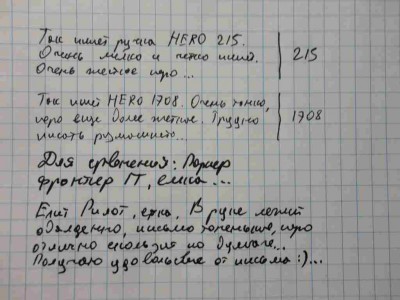 Так пишет ручка HERO 215.
Очень мелко и четко пишет.
Очень жесткое перо...
215
Так пишет HERO 1708. Очень тонко,
перо еще более жесткое. Трудно
писать размашисто...
1708
Для сравнения: Паркер
фронтиер П, ешка...
Елит Пилот, ешка. В руке лежит
обалденно, письмо тоненькое, перо
отлично скользит по бумаге...
Получаю удовольствие от письма :)...